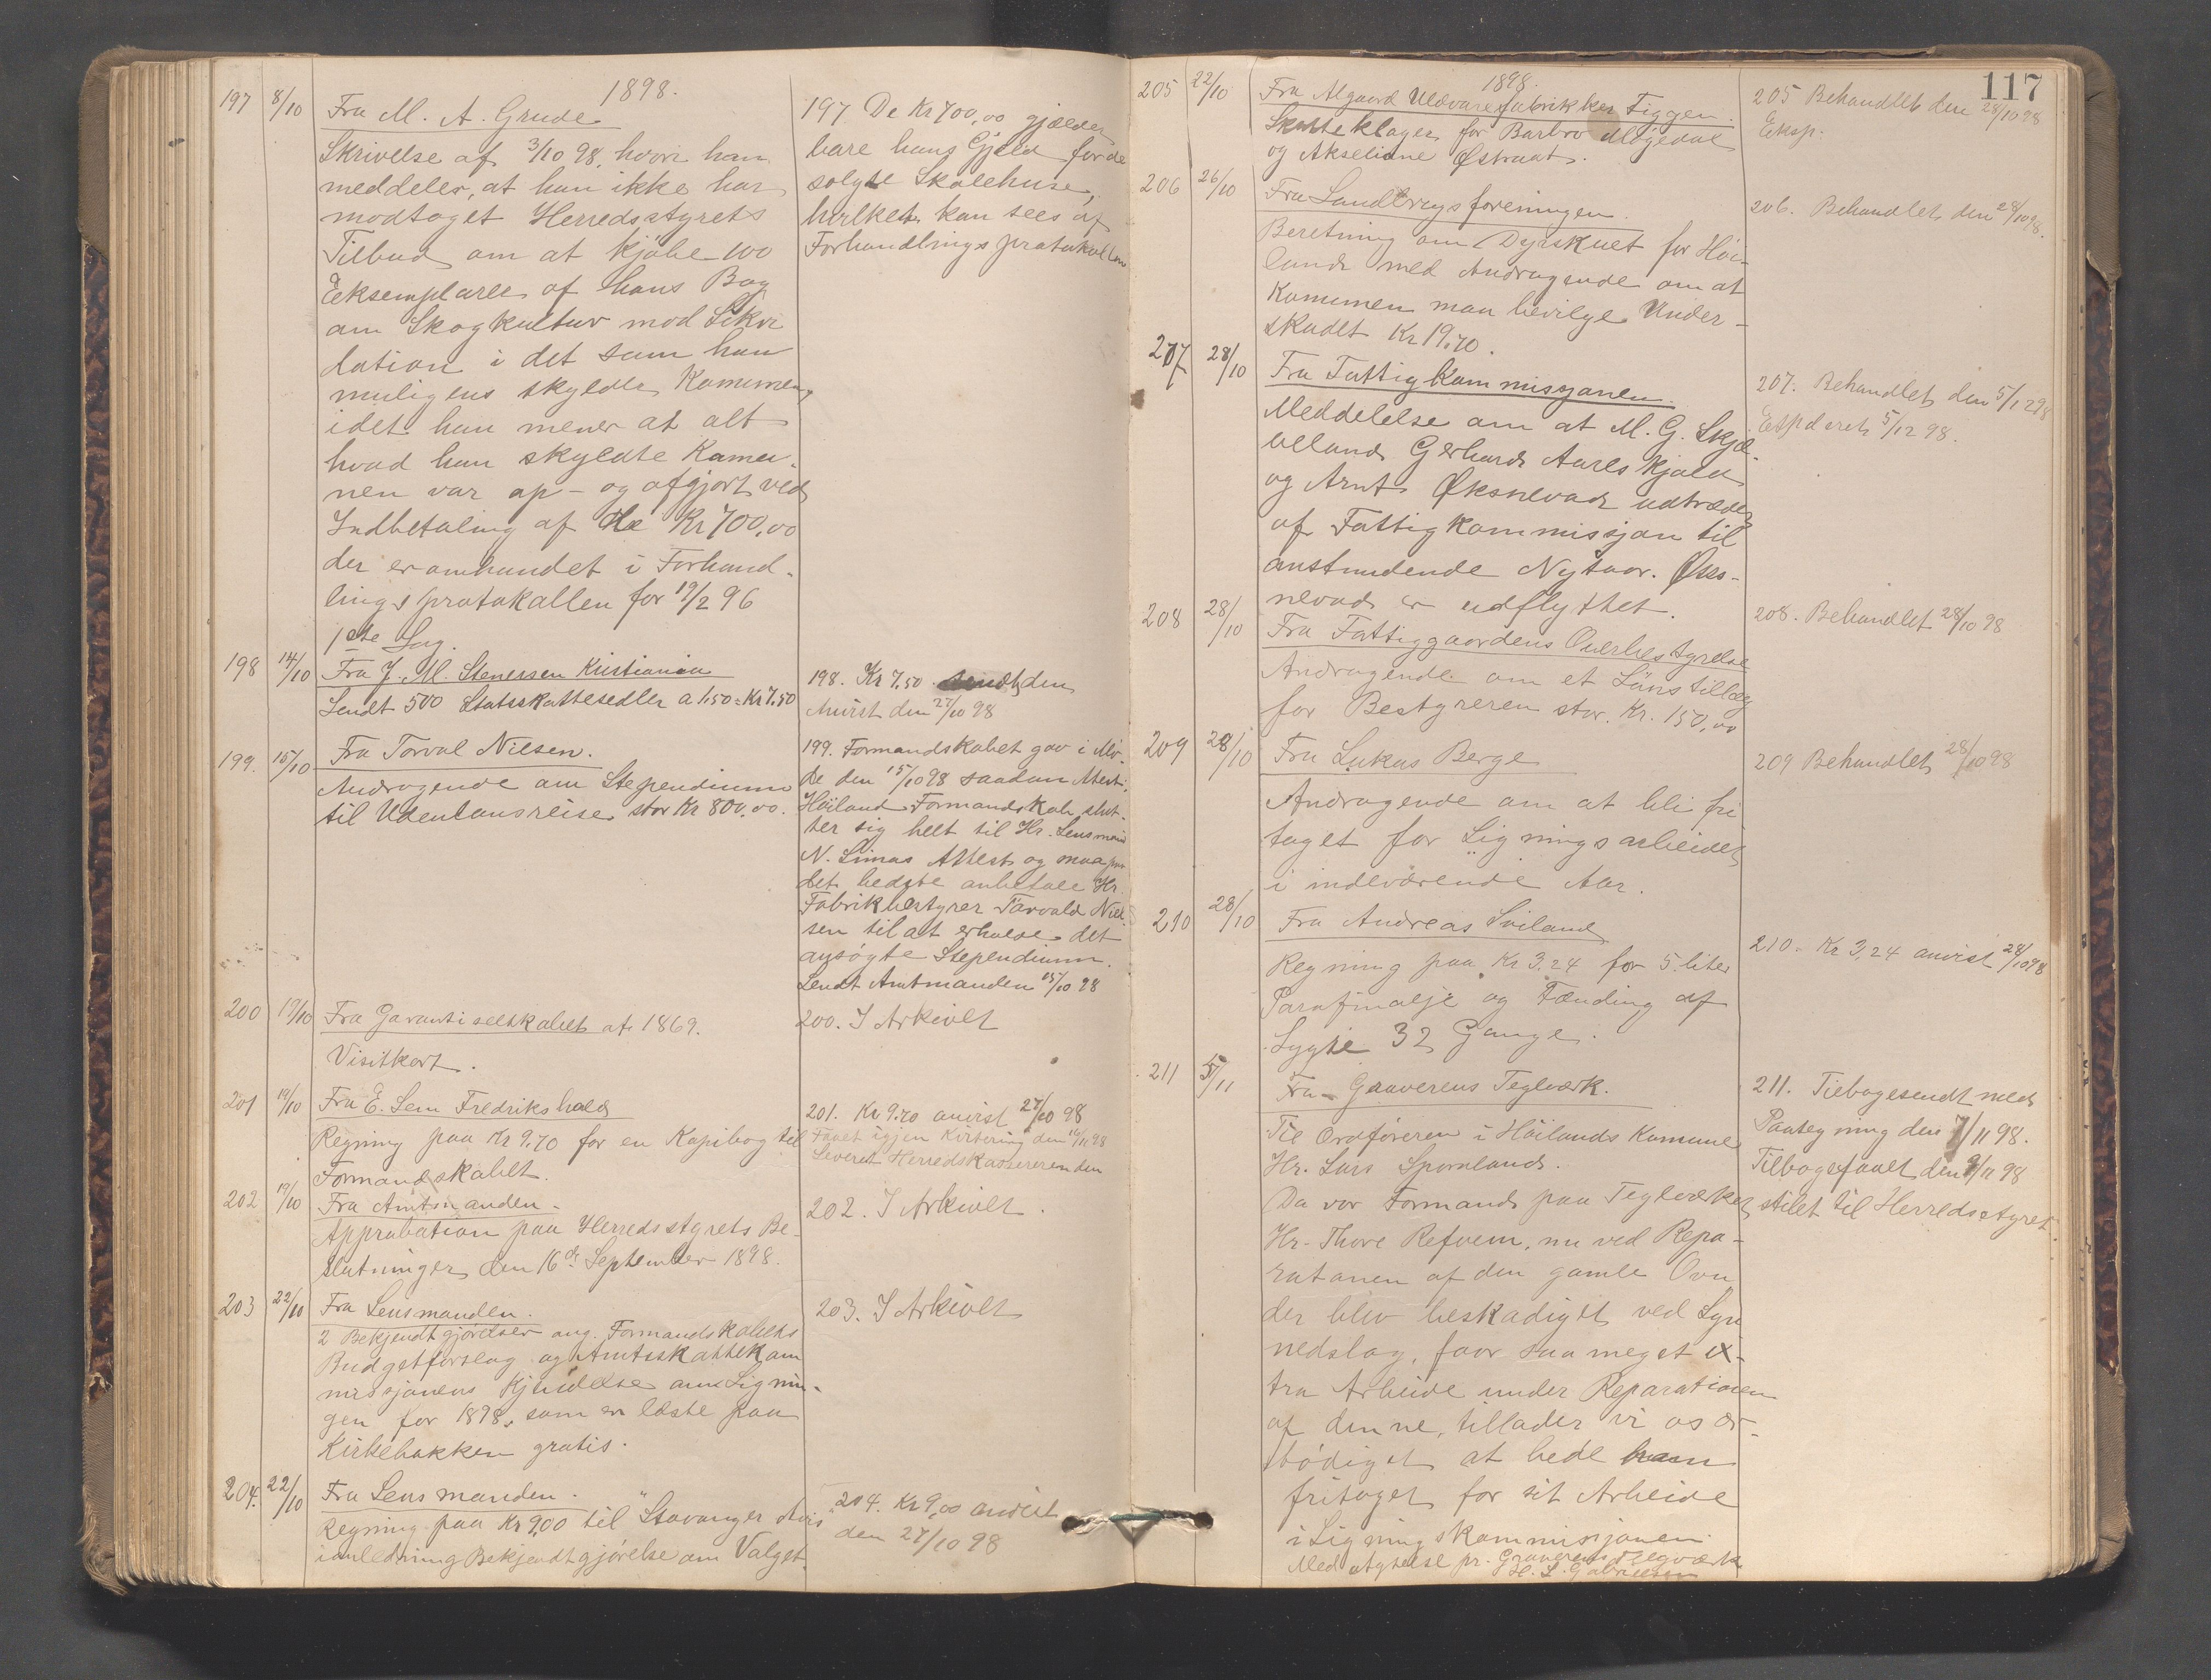 1898.
197 8/10 Fra M. A. Grude
Skrivelse af 3/10 98, hvori han
meddeler, at han ikke har
modtaget Herredsstyrets
Tilbud om at kjøbe 100
Eksemplarer af hans Bog
om Skogkultur mod Likvi
dation i det som han
muligens skylder Kommunen,
idet han mener at alt
hvad han skyldte Kommu-
nen var op- og afgjort ved
Indbetaling af Kr 700,00
der er omhandlet i Forhand-
lingsprotokollen for 19/2 96
1ste Sag.
197. De Kr 700,00 gjælder
bare hans Gjæld for de
solgte Skolehuse,
hvilket kan sees af
Forhandlingsprotokollen
198 14/10 Fra J. M. Stenersen Kristiania
Sendt 500 Statsskattesedler a 1.50 = Kr 7.50
198. Kr 7.50 den
Anvist den 27/10 98
199. 15/10 Fra Torval Nielsen.
Andragende om Stependium
til Udenlansreise stor Kr 800,00.
199. Formandskabet gav i Mö-
de den 15/10 98 saadan Attest:
Höiland Formandskab slut-
ter sig helt til Hr. Lensmand
N. Limas Attest og maa paa
det bedste anbefale Hr.
Fabrikbestyrer Torvald Niel-
sen til at erholde det
ansögte Stependium.
Sendt Amtmanden 15/10 98
200 19/10 Fra Garantiselskabet af 1869.
Visitkort.
200. I Arkivet
201 19/10 Fra E. Sem Fredrikshald
Regning paa Kr 9.70 for en Kopibog til
Formandskabet.
201. Kr 9.70 anvist 27/10 98
Faaet igjen Kvitering den 16/11 98
Leveret Herredskassereren den
202 19/10 Fra Amtmanden.
Approbation paa Herredsstyrets Be-
slutninger den 16de September 1898.
202. I Arkivet.
203 22/10 Fra Lensmanden.
2 Bekjendtgjörelser ang. Formandskabets
Budgetforslag og Amtsskattekom
missjonens Kjendelse om Lignin-
gen for 1898, som er læste paa
Kirkebakken gratis.
203. I Arkivet
204. 22/10 Fra Lensmanden.
Regning paa Kr 9,00 til "Stavanger Avis"
i anledning Bekjendtgjörelse om Valget.
204. Kr 9,00 anvist
den 27/10 98
117
1898.
205 22/10 Fra Algaard Uldvarefabrikker Figgen.
Skatteklager for Barbro Mögedal
og Akseliane Østraat.
205 Behandlet den 28/10 98
Eksp.
206 26/10 Fra Landbrugsforeningen.
Beretning om Dyrskuet for Höi-
land med Andragende om at
Kommunen maa bevilge Under-
skudet Kr 19.70.
206. Behandlet den 28/10 98.
207 28/10 Fra Fattigkommissjonen.
Meddelelse om at M. G. Skjæ-
velland, Gerhard Aareskjold
og Arnt Øksnevad udtræder
af Fattigkommissjon til
anstundende Nytaar. Øks-
nevad er udflyttet.
207. Behandlet den 5/12 98
Etspderet 5/12 98.
208 28/10 Fra Fattiggaardens Overbestyrelse
Andragende om et Lönstillæg
for Bestyreren stor. Kr. 150,00
208. Behandlet 28/10 98
209 28/10 Fra Lukas Berge
Andragende om at bli fri
taget for Ligningsarbeidet
i indeværende Aar.
209 Behandlet 28/10 98
210 28/10 Fra Andreas Sviland
Regning paa Kr 3.24 for 5 liter
Parafinolje og Tænding af
Lygte 32 Gange.
210. Kr 3,24 anvist 28/10 98
211 5/11 Fra Graverens Teglværk.
Til Ordföreren i Höilands Komune
Hr. Lars Spornland.
Da vor Formand paa Teglværket
Hr. Thore Refvem, nu ved Repa-
rationen af den gamle Ovn
der blev beskadiget ved Lyn
nedslag, faar saa meget ex-
tra Arbeide under Reparationen
af denne, tillader vi os ær-
bödigst at bede ham
fritaget for sit Arbeide
i Ligningskommissjonen.
Med Agtelse pr. Graverens Teglværk
H. L. Gabrielsen
211. Tilbagesendt med
Paategning den 7/11 98.
Tilbagefaaet den 9/11 98
stilet til Herredsstyret.